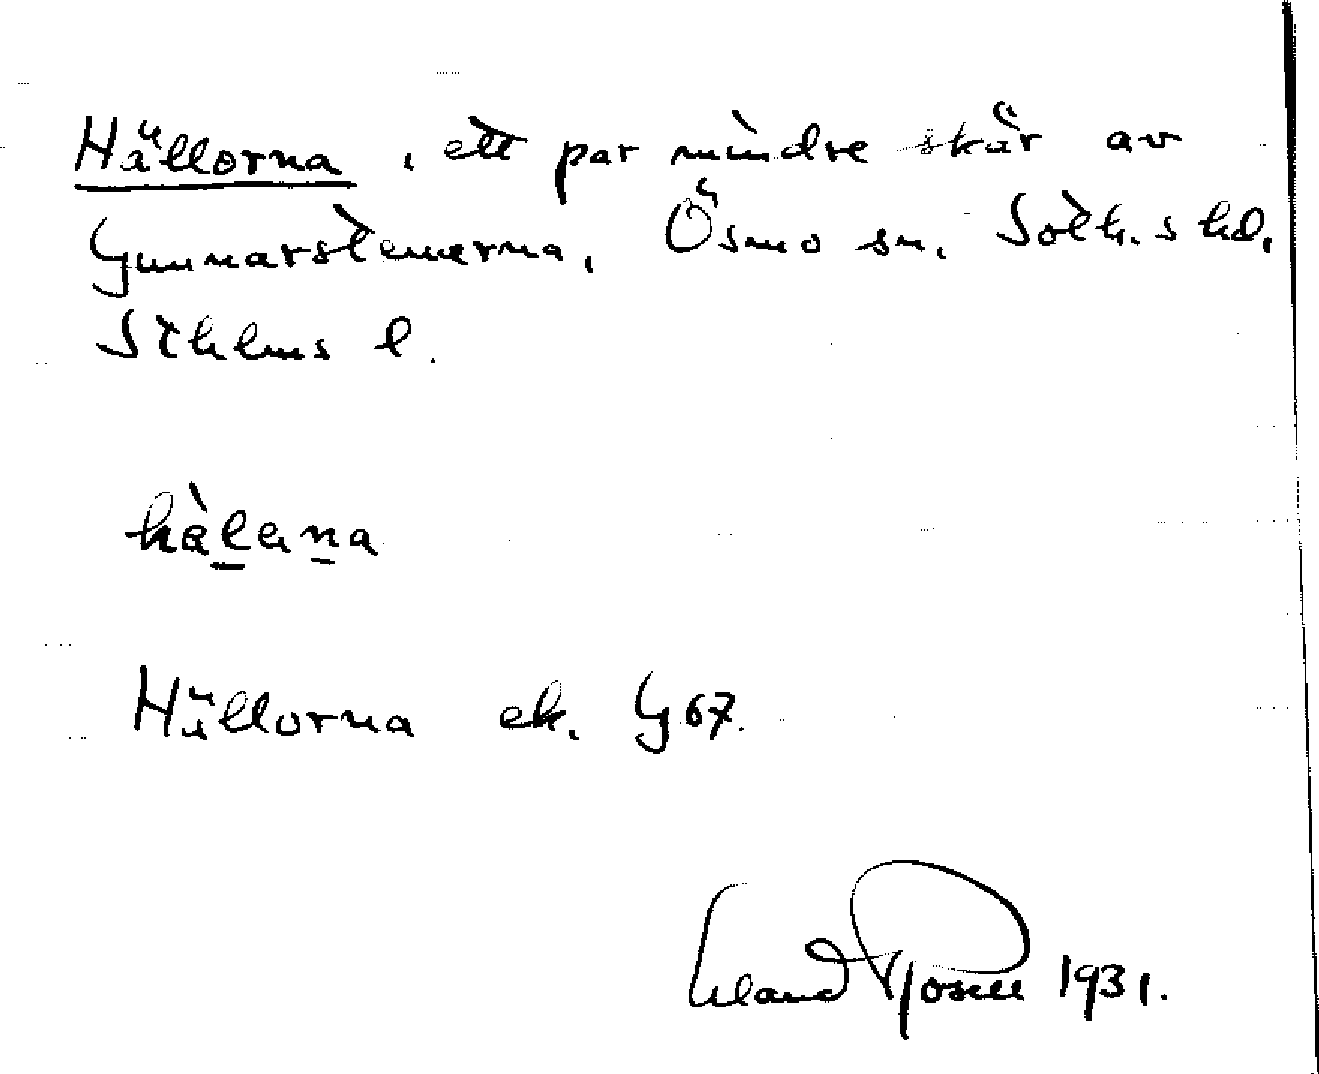 Hällorna, ett par mindre skär av
Gunnarstenarna, Ösmo sn. Soth.s hd,
Sthlms l.
hàlena
Hällorna ek. G 67.
Erland Rosell 1931.